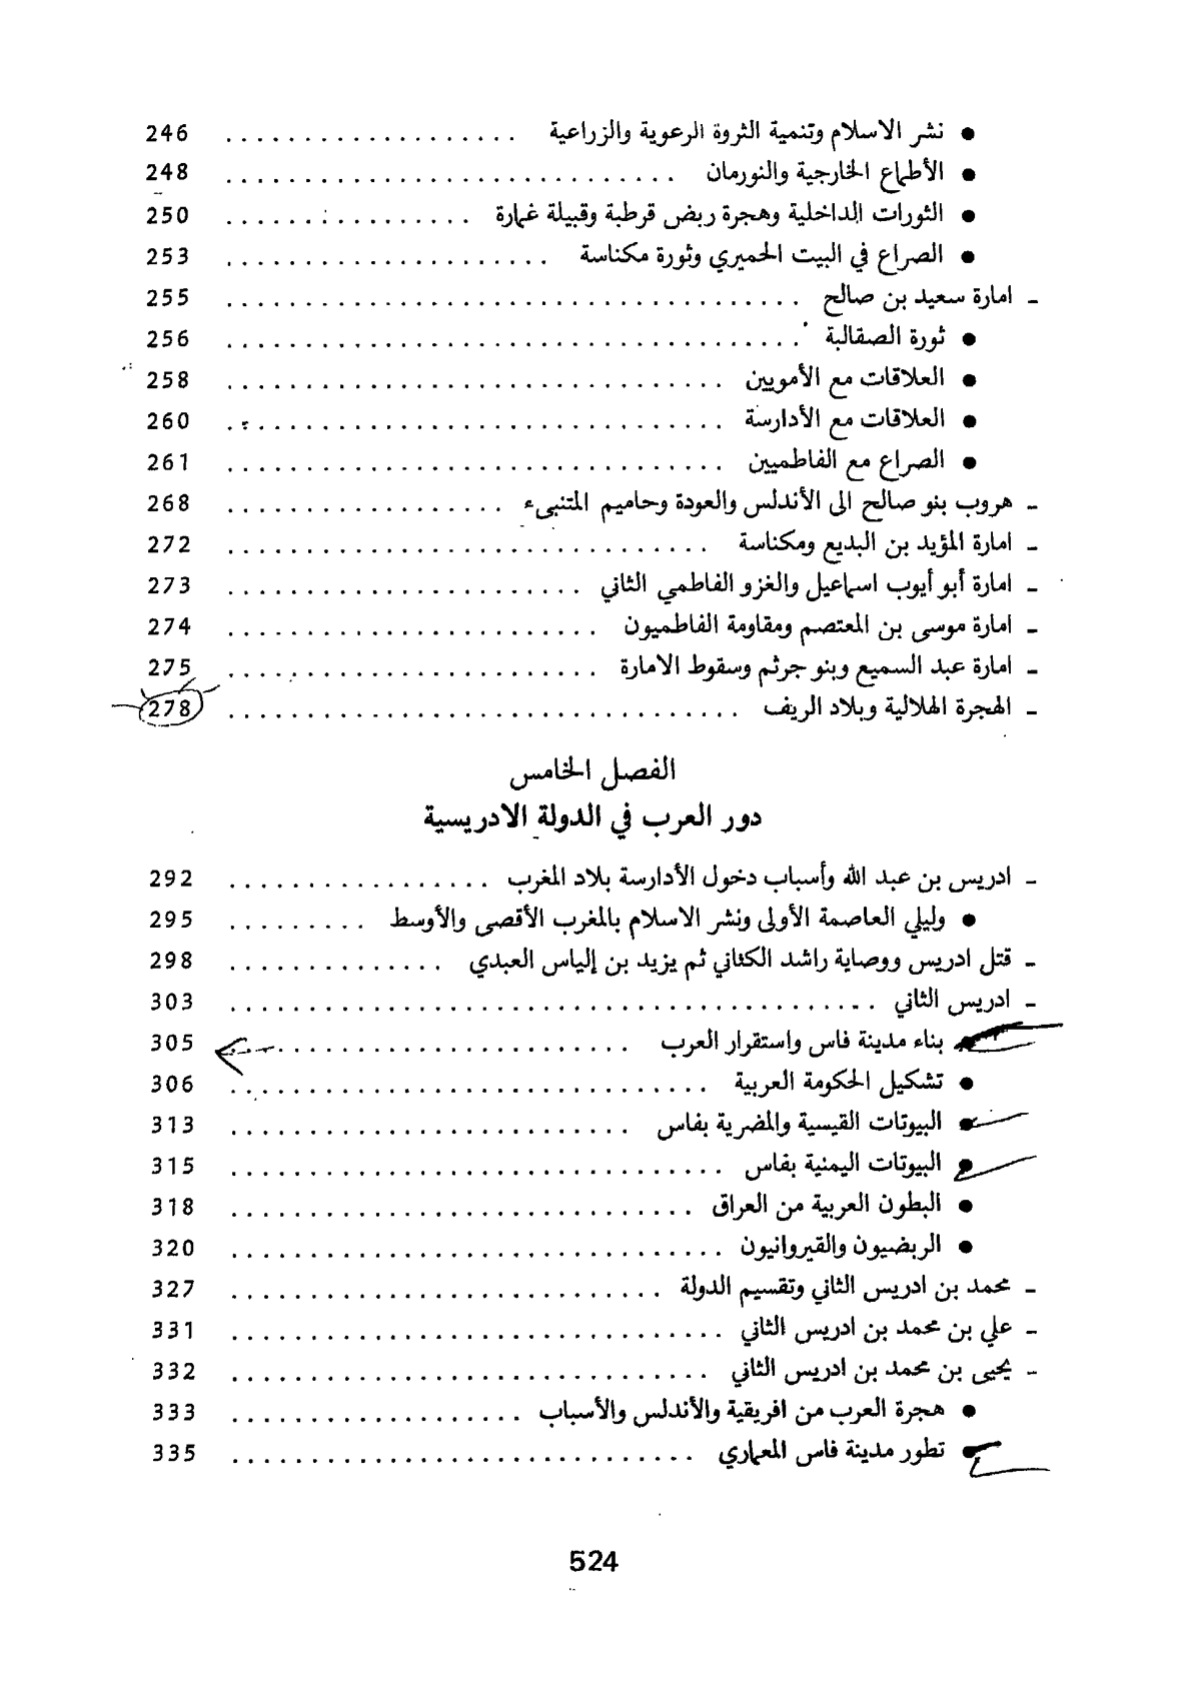 ● نشر الاسلام وتنمية الثروة الرعوية والزراعية . . . . . . . . . . . . . . . . . . . 246
● الأطماع الخارجية والنورمان . . . . . . . . . . . . . . . . . . . . . . . . . . . . . 248
● الثورات الداخلية وهجرة ربض قرطبة وقبيلة غمارة . . . . . . . . . . . . . . . . 250
● الصراع في البيت الحميري وثورة مكناسة . . . . . . . . . . . . . . . . . . . . . 253
ـ امارة سعيد بن صالح . . . . . . . . . . . . . . . . . . . . . . . . . . . . . . . . . . . . . 255
● ثورة الصقالبة . . . . . . . . . . . . . . . . . . . . . . . . . . . . . . . . . . . . . 256
● العلاقات مع الأمويين . . . . . . . . . . . . . . . . . . . . . . . . . . . . . . . . 258
● العلاقات مع الأدارسة . . . . . . . . . . . . . . . . . . . . . . . . . . . . . . . . 260
● الصراع مع الفاطميين . . . . . . . . . . . . . . . . . . . . . . . . . . . . . . . . 261
ـ هروب بنو صالح الى الأندلس والعودة وحاميم المتنبىء . . . . . . . . . . . . . . . . . . 268
ـ امارة المؤيد بن البديع ومكناسة . . . . . . . . . . . . . . . . . . . . . . . . . . . . . . . 272
ـ امارة أبو أيوب اسماعيل والغزو الفاطمي الثاني . . . . . . . . . . . . . . . . . . . . . . . 273
ـ امارة موسى بن المعتصم ومقاومة الفاطميون . . . . . . . . . . . . . . . . . . . . . . . . 274
ـ امارة عبد السميع وبنو جرثم وسقوط الامارة . . . . . . . . . . . . . . . . . . . . . . . . 275
ـ الهجرة الهلالية وبلاد الريف . . . . . . . . . . . . . . . . . . . . . . . . . . . . . . . . . 278
الفصل الخامس
دور العرب في الدولة الادريسية
ـ ادريس بن عبد الله وأسباب دخول الأدارسة بلاد المغرب . . . . . . . . . . . . . . . . . 292
● وليلي العاصمة الأولى ونشر الاسلام بالمغرب الأقصى والأوسط . . . . . . . . . 295
ـ قتل ادريس ووصاية راشد الكثاني ثم يزيد بن إلياس العبدي . . . . . . . . . . . . . . 298
ـ ادريس الثاني . . . . . . . . . . . . . . . . . . . . . . . . . . . . . . . . . . . . . . . . . . 303
● بناء مدينة فاس واستقرار العرب . . . . . . . . . . . . . . . . . . . . . . . . . . 305
● تشكيل الحكومة العربية . . . . . . . . . . . . . . . . . . . . . . . . . . . . . . . 306
● البيوتات القيسية والمضرية بفاس . . . . . . . . . . . . . . . . . . . . . . . . . . 313
● البيوتات اليمنية بفاس . . . . . . . . . . . . . . . . . . . . . . . . . . . . . . . . 315
● البطون العربية من العراق . . . . . . . . . . . . . . . . . . . . . . . . . . . . . . 318
● الربضيون والقيروانيون . . . . . . . . . . . . . . . . . . . . . . . . . . . . . . . . 320
ـ محمد بن ادريس الثاني وتقسيم الدولة . . . . . . . . . . . . . . . . . . . . . . . . . . . . 327
ـ علي بن محمد بن ادريس الثاني . . . . . . . . . . . . . . . . . . . . . . . . . . . . . . . . 331
ـ يحيى بن محمد بن ادريس الثاني . . . . . . . . . . . . . . . . . . . . . . . . . . . . . . . 332
● هجرة العرب من افريقية والأندلس والأسباب . . . . . . . . . . . . . . . . . . . 333
● تطور مدينة فاس المعماري . . . . . . . . . . . . . . . . . . . . . . . . . . . . . . 335
524